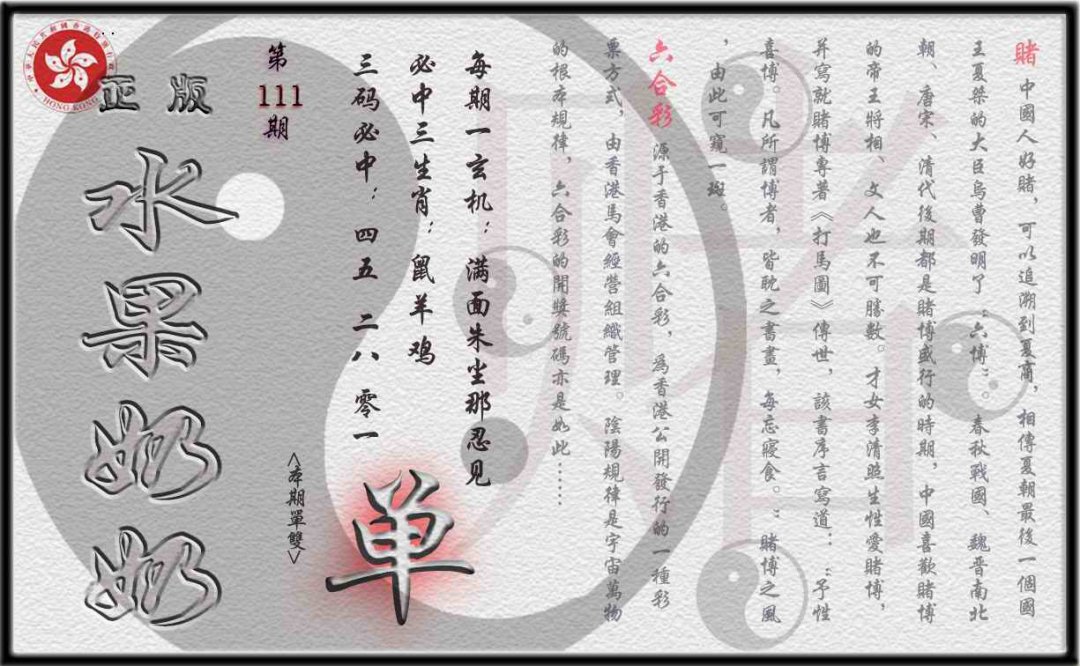 賭 中國人好賭，可以追溯到夏商，相傳夏朝最後一個國
王夏桀的大臣烏曹發明了“六博”。春秋戰國、魏晋南北
朝、唐宋、清代後期都是賭博盛行的時期，中國喜歡賭博
的帝王將相、文人也不可勝數。才女李清照生性愛賭博，
并寫就賭博專著《打馬圖》傳世，該書序言寫道：“予性
喜博。凡所謂博者，皆耽之書晝，每忘寢食。”賭博之風
，由此可窺一斑。
六合彩 源于香港的六合彩，爲香港公開發行的一種彩
票方式，由香港馬會經營組織管理。陰陽規律是宇宙萬物
的根本規律，六合彩的開獎號碼亦是如此……
每期一玄机：满面朱尘那忍见
必中三生肖：鼠羊鸡
三码必中：四五 二八 零一
单
<本期單雙>
第
111
期
正版
水果奶奶
HONG KONG